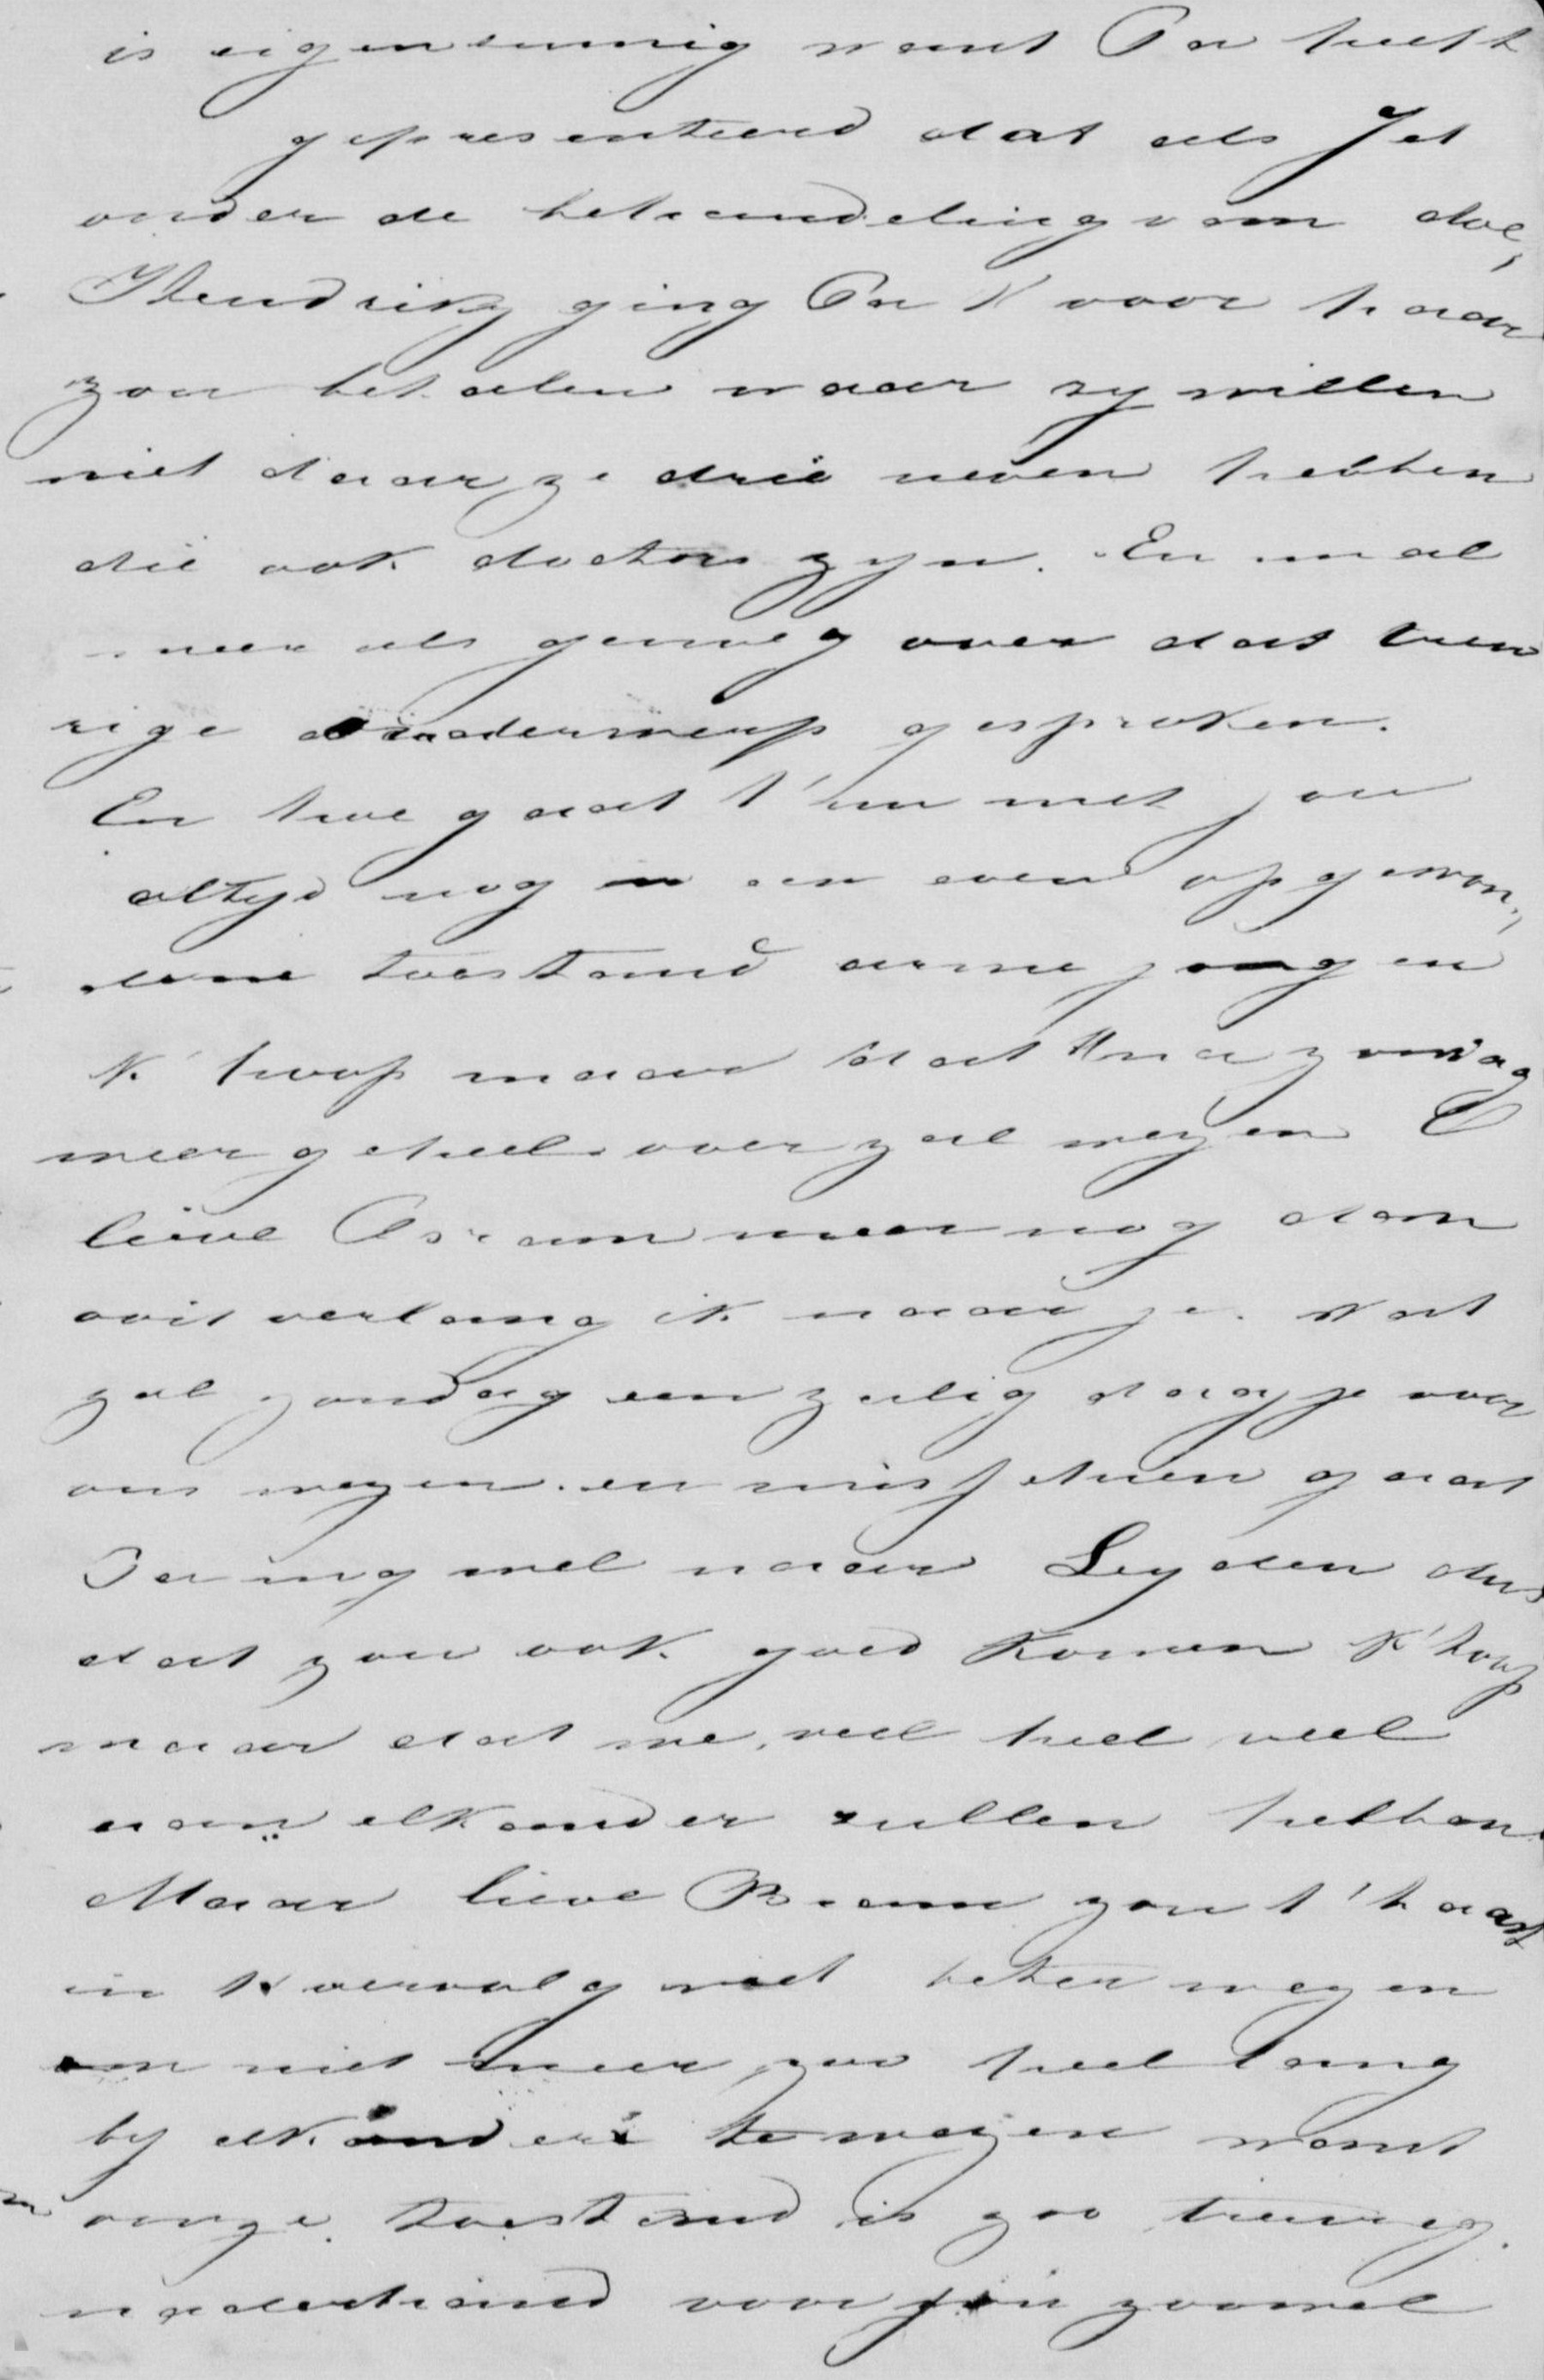 is eigenzinnig want Pa heeft
gepresenteerd dat als Jet
onder de behandeling van doc,
Hendriks ging Pa 't voor haar
zou betalen maar zy willen
niet daar ze drie neven hebben
die ook doctors zyn. En nu al
meer als genoeg over dat treu
rige onderwerp gesproken.
En hoe gaat t' nu met jou
altyd nog in een even opgewon,
dene toestand arme jongen
k' hoop maar dat 't na zondag
weer geheel over zal wezen O
lieve Bram meer nog dan
ooit verlang ik naar je. Wat
zal zondag een zalig dagje voor
ons wezen. en misschien gaat
wel naar Leyden dus
dat zou ook goed komen k' hoop
maar dat we veel heel veel
aan elkander zullen hebben
Maar lieve Bram zou t' haast
in 't vervolg niet beter wezen
om niet meer zoo heel lang
by elkander te wezen want
onze toestand is zoo treurig
naderhand voor jou zoowel